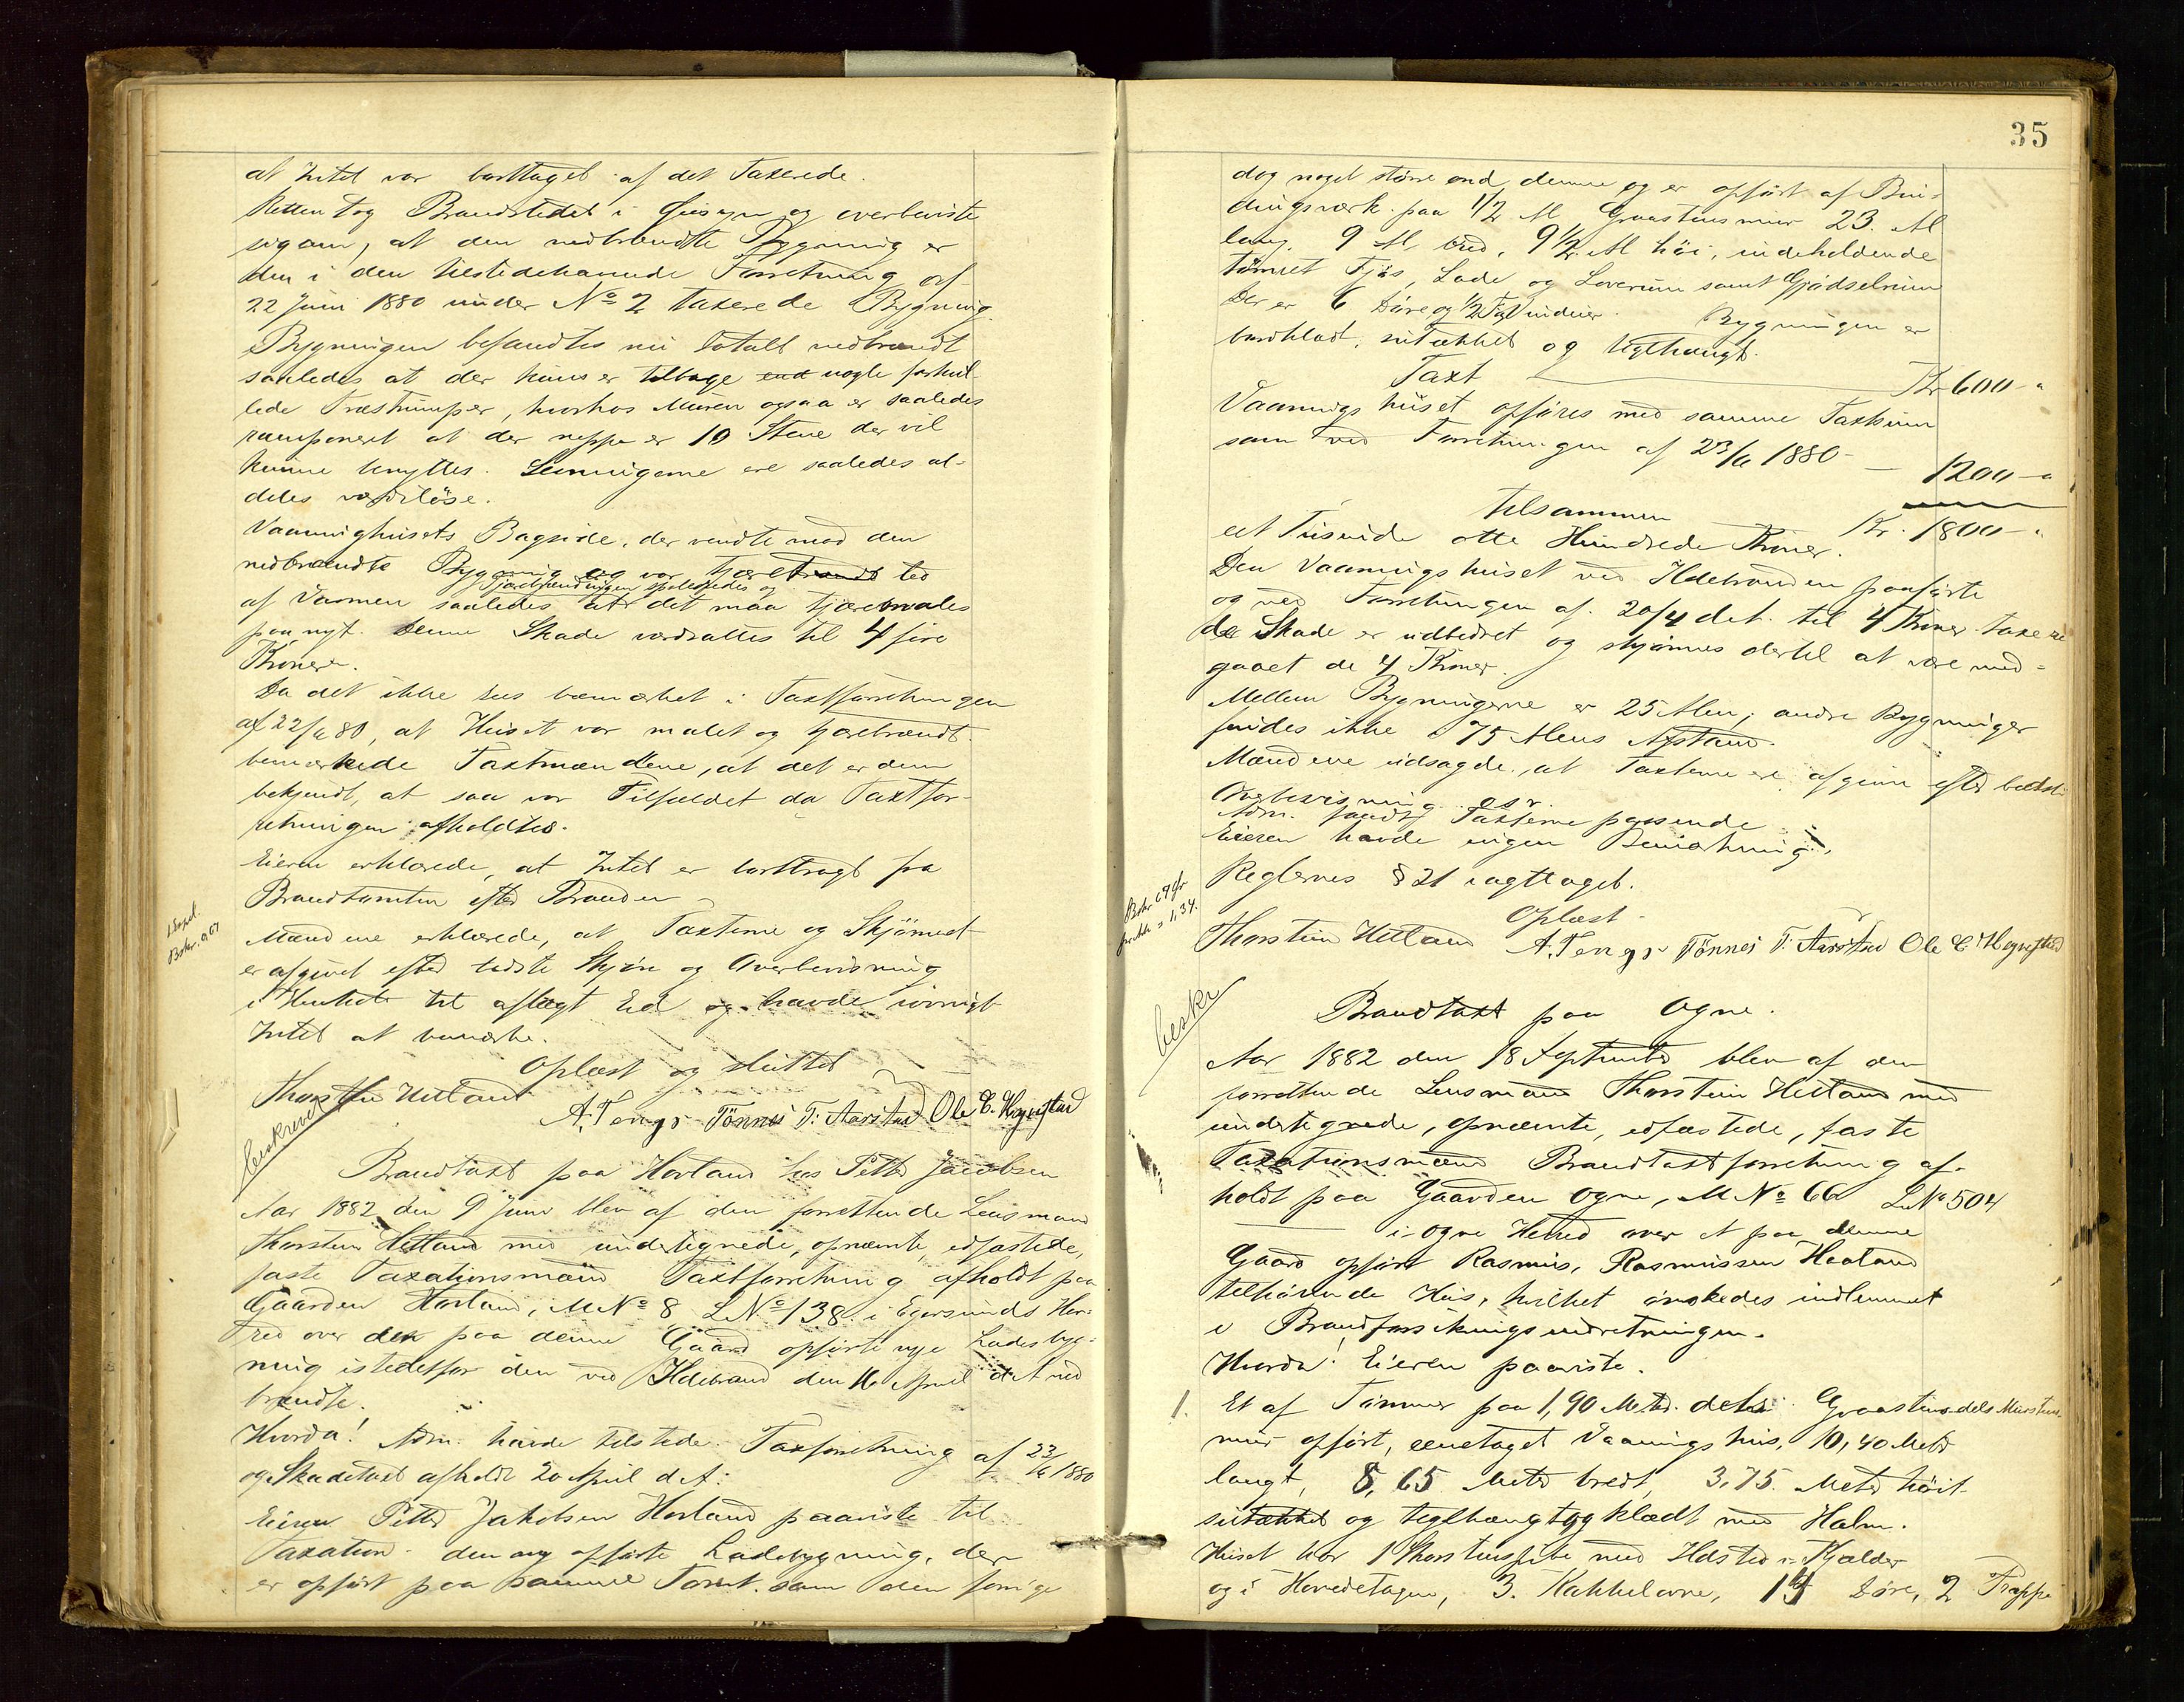 at Intet var borttaget af det Taxerede.
Retten tog Brandstedet i Øiesyn og overbeviste
sig om, at den nedbrændte Bygning er
den i den tilstedehavende Forretning af
22 Juni 1880 under No 2 taxerede Bygning.
Bygningen befandtes nu totalt nedbrændt
saaledes at der kuns er tilbage end nogle forkul-
lede Træstumper, hvorhos Muren ogsaa er saaledes
ramponeret at der neppe er 10 Stene der vil
kunne benyttes. Levningerne ere saaledes al-
deles værdiløse.
Vaaninghusets Bagside, der vendte mod den
nedbrændte Bygning og var tjærebrændt led
Tjærebrændingen ødelagdes og
af Varmen saaledes at det maa tjæremales
paa nyt. Denne Skade værdsattes til 4 fire
Kroner.
Da det ikke sees bemærket i Taxtforretningen
af 22/6 80, at Huset var malet og tjærebrændt
bemærkede Taxtmændene, at det er dem
bekjendt, at saa var Tilfældet da Taxtfor-
retningen afholdtes.
Eieren erklærede, at Intet er borttragt fra
Brandtomten efter Branden
Mændene erklærede, at Taxterne og Skjønnet
er afgivet efter bedste Skjøn og Overbevisning
i Henhold til aflagt Ed og havde iøvrigt
Intet at bemærke.
Oplæst og sluttet
Thorstein Hetland
A. Tengs Tönnes T. Aarstad Ole E. Hegrestad
beskrevet
Brandtaxt paa Hovland hos Petter Jacobsen
Aar 1882 den 9 Juni blev af den forrettende Lensmand
Thorstein Hetland med undertegnede, opnævnte, edfæstede,
faste Taxationsmænd Taxtforretning afholdt paa
Gaarden Hovland, M No 8 L No 138 i Egersunds Her-
red over den paa denne Gaard opførte nye Ladebyg-
ning istedetfor den ved Ildebrand den 16 April d. A. ned
brændte.
Hvorda! Adm. havde tilstede Taxforretning af 22/6 1880
og Skadetaxt afholdt 20 April d. A:
Eieren Petter Jakobsen Hovland paaviste til
Taxation den ny opførte Ladebygning, der
er opført paa samme Tomt som den forrige
35
dog noget større end denne og er opført af Bin-
dingsværk paa 1/2 Al Graastensmur 23. Al
lang. 9 Al bred, 9 1/2 Al høi, indeholdende
tømret Fjøs, Lade og Loverum samt Gjødselrum
Der er 6 Døre og 1/2 Fag Vinduer. Bygningen er
bordklædt, sutækket og teglhængt.
Taxt Kr 600 -"
Vaanings huset opføres med samme Taxtsum
som ved Forretningen af 23/6 1880 - 1200 -"
tilsammen Kr. 1800 -"
eet Tusinde otte Hundrede Kroner.
Den Vaanings huset ved Ildebranden paaførte
og ved Forretningen af 20/4 d. A. til 4 Kroner taxere
de Skade er udbedret og skjønnes dertil at være med-
gaaet de 4 Kroner.
Mellem Bygningerne er 25 Alen; andre Bygninger
findes ikke i 75 Alens Afstand.
Mændene udsagde, at Taxterne ere afgivne efter bedste
Overbevisning osv.
Adm. fandt Taxterne passende
Eieren havde ingen Bemærkning.
Reglernes § 21 iagttaget.
Oplæst.
Thorstein Hetland A. Tengs Tönnes T. Aarstad Ole E. Hegrestad
beskr
Brandtaxt paa Ogne.
Aar 1882 den 18 September blev af den
forrettende Lensmand Thorstein Hetland med
undertegnede, opnævnte, edfæstede, faste
Taxationsmænd Brandtaxtforretning af-
holdt paa Gaarden Ogne, M No 66 L No 504
i Ogne Herred over et paa denne
Gaard opført Rasmus Rasmussen Haaland
tilhørende Hus, hvilket ønskedes indlemmet
i Brandforsikringsindretningen.
Hvorda! Eieren paaviste.
1. Et af Tømmer paa 1,90 Meter dels Graastens dels Murstens
mur opført, eenetaget Vaanings hus, 10,40 Meter
langt, 8,65 Meter bredt, 3,75 Meter høit
sutækket og teglhængt og klædt med Halm.
Huset har 1 Skorstenspibe med Ildsted i Kjælder
og i Hovedetagen, 3 Kakkelovne, 14 Døre, 2 Trapper